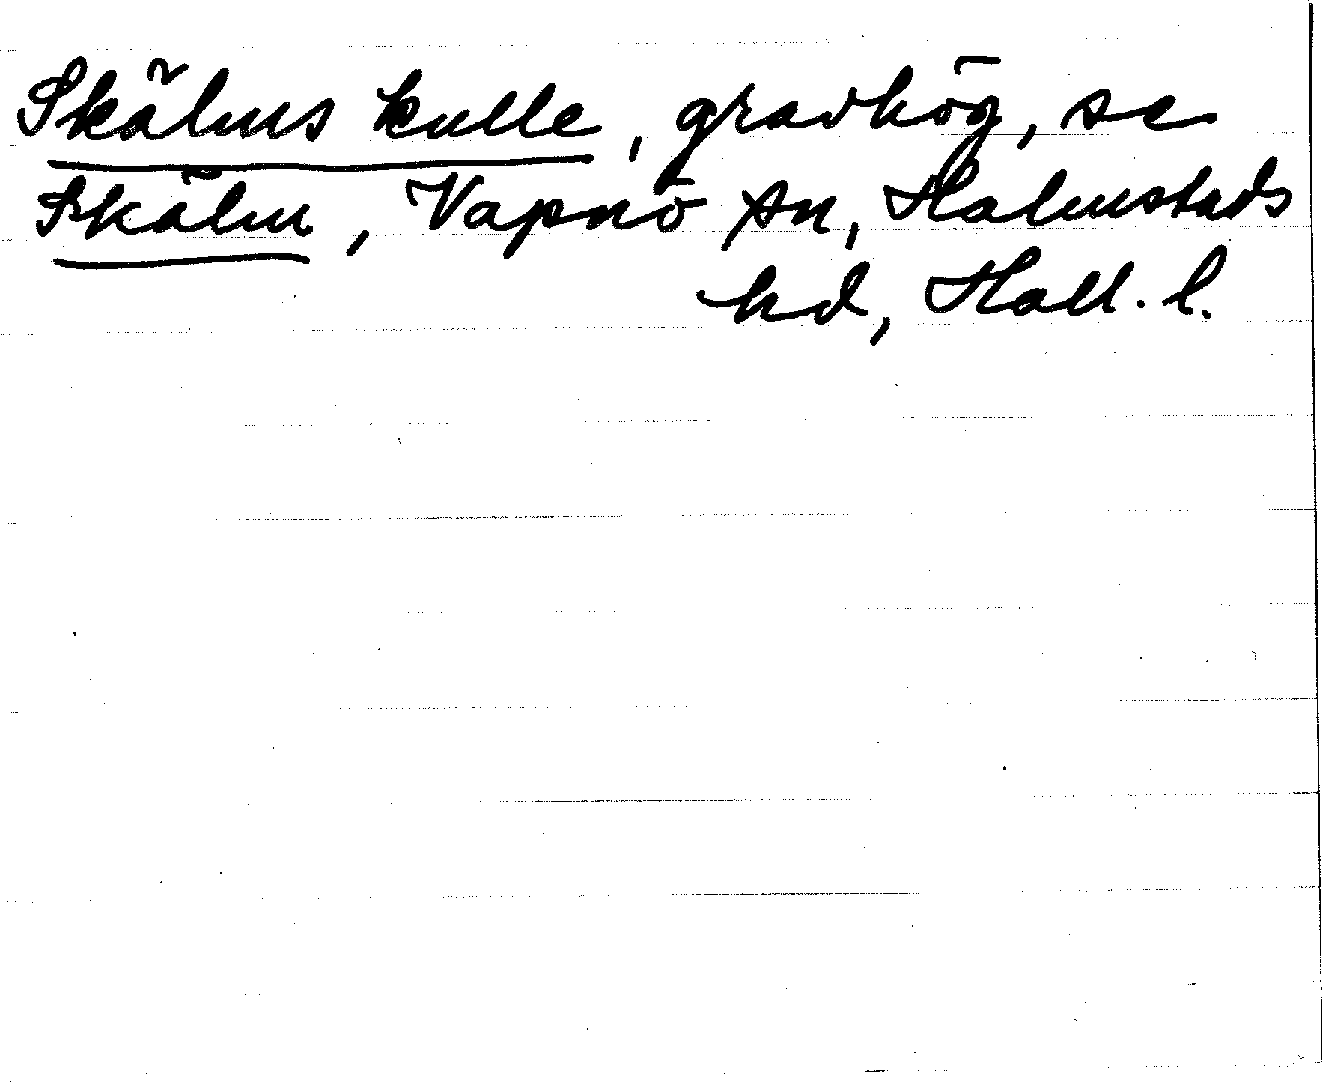 Skälms kulle, gravhög, se
Skälm, Vapnö sn, Halmstads
hd, Hall. l.